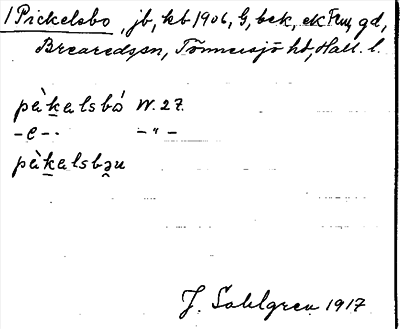 1 Pickelsbo, jb, kb 1906, G, bek, ek Flm, gd,
Breareds sn, Tönnersjö hd, Hall. l.
pàkalsbó W. 27.
-e-· - " -
pàkalsbəu
J. Sahlgren 1917